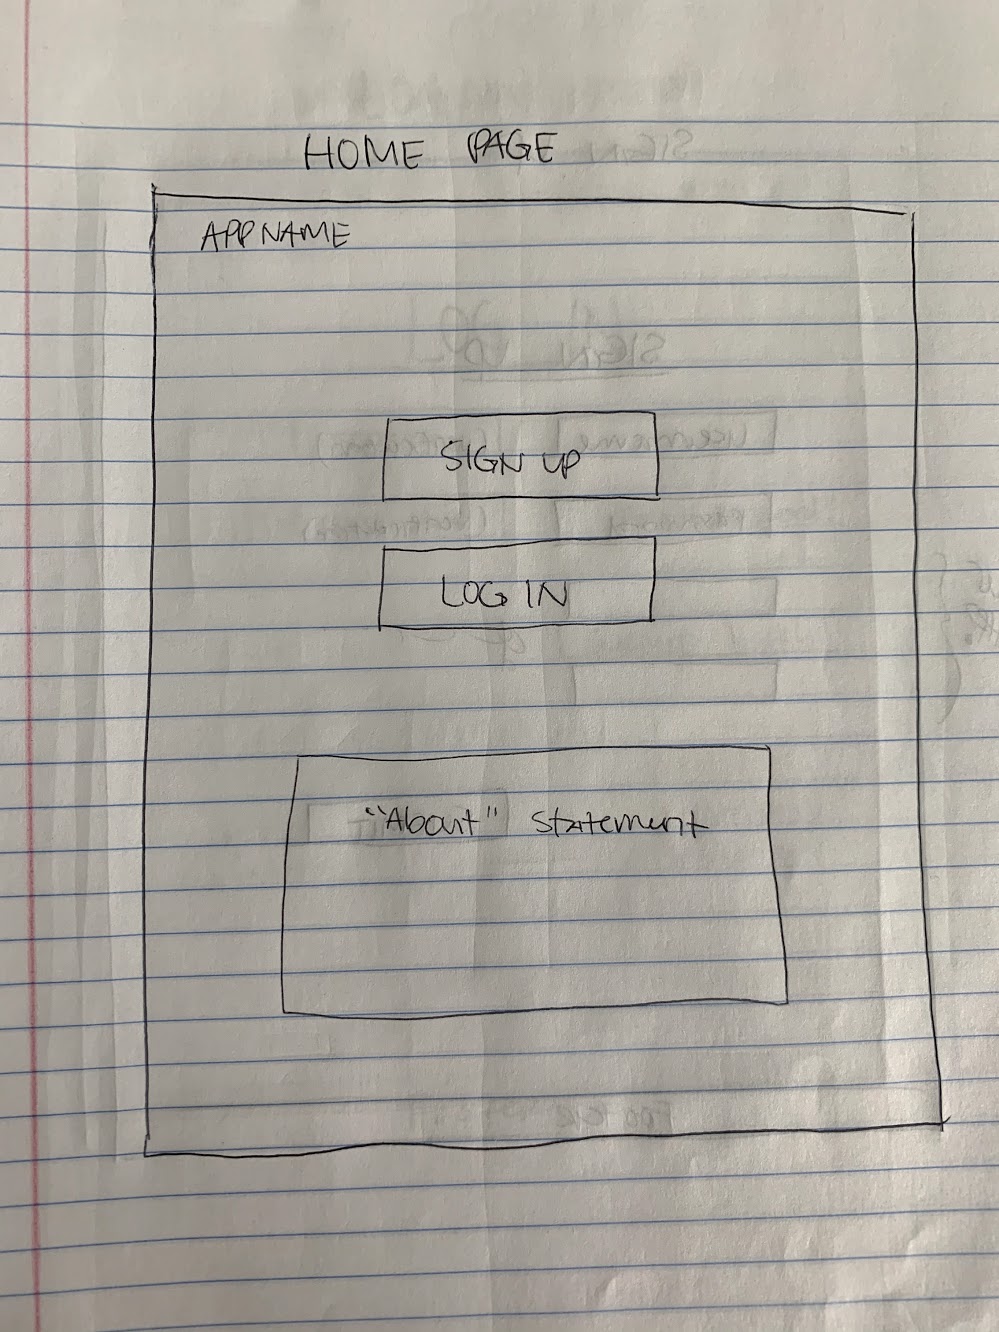 HOME PAGE
APP NAME
SIGN UP
LOG IN
"About" statement